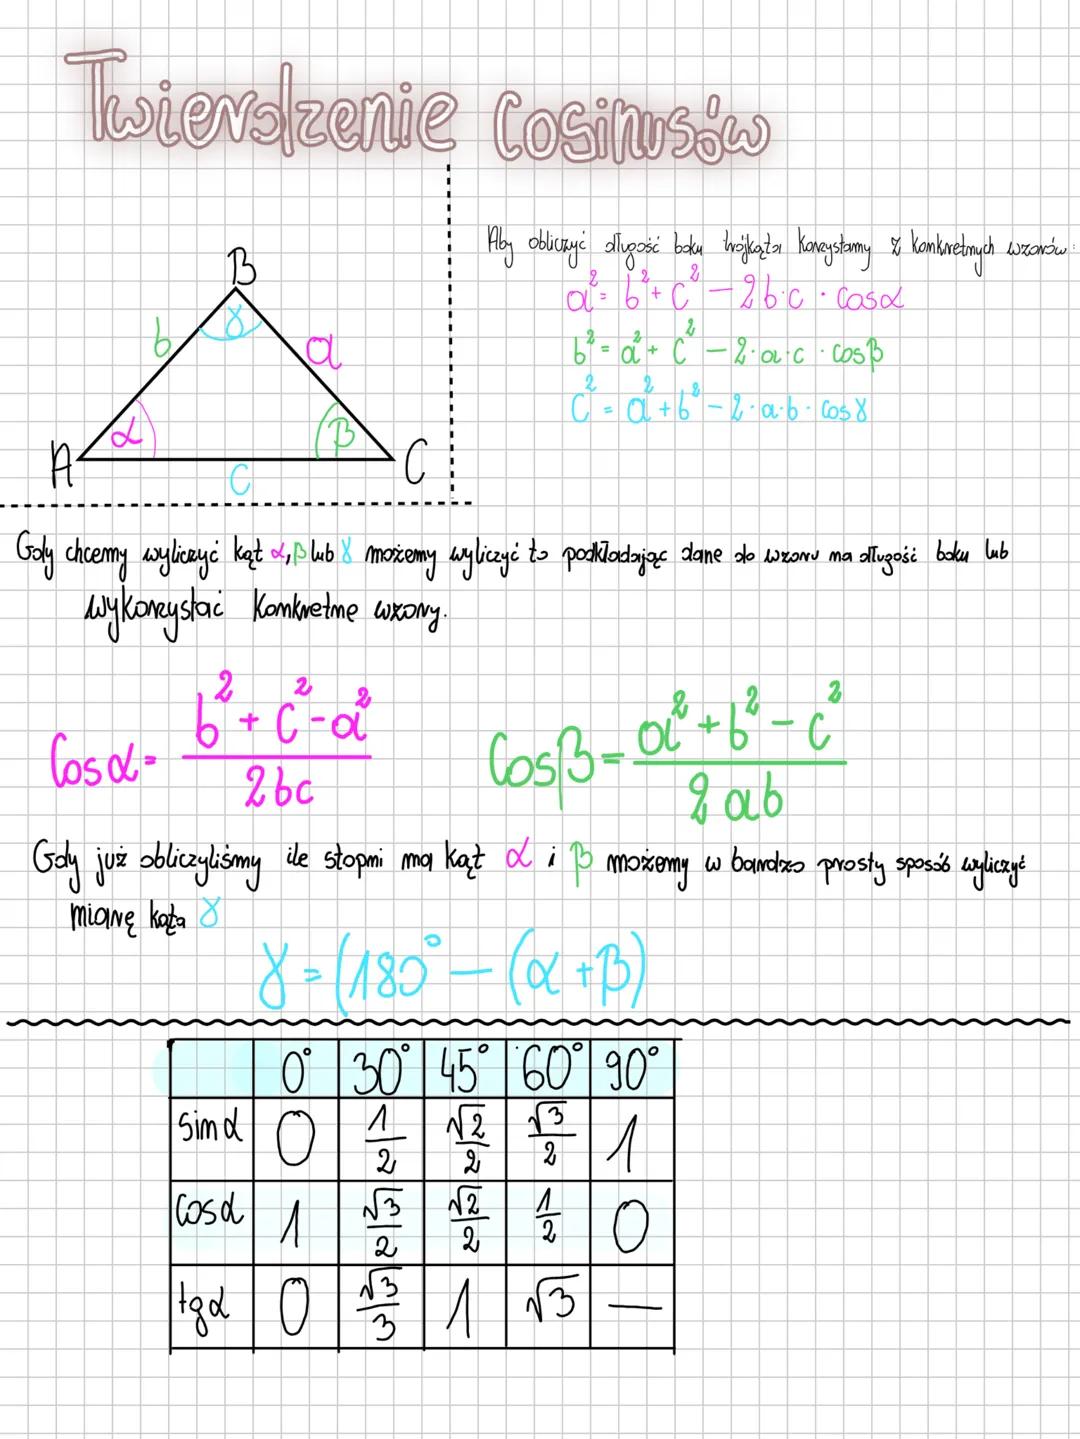 Twierdzenie Cosinusów
Aby obliczyć długość boku trójkąta korzystamy z konkretnych wzorów:
a² = b² + c² – 2b·c · cosα
b² = a² + c² – 2·a·c · cosβ
c² = a² + b² – 2·a·b · cosγ
B
b γ a
α β
A C
c
Gdy chcemy wyliczyć kąt α, β lub γ możemy wyliczyć to podkładając dane do wzoru na długość boku lub
wykorzystać konkretne wzory.
cosα = (b² + c² - a²) / 2bc
cosβ = (a² + b² - c²) / 2ab
Gdy już obliczyliśmy ile stopni ma kąt α i β możemy w bardzo prosty sposób wyliczyć
miarę kąta γ
γ = (180° – (α + β)
0° 30° 45° 60° 90°
sinα 0 1/2 √2/2 √3/2 1
cosα 1 √3/2 √2/2 1/2 0
tgα 0 √3/3 1 √3 —